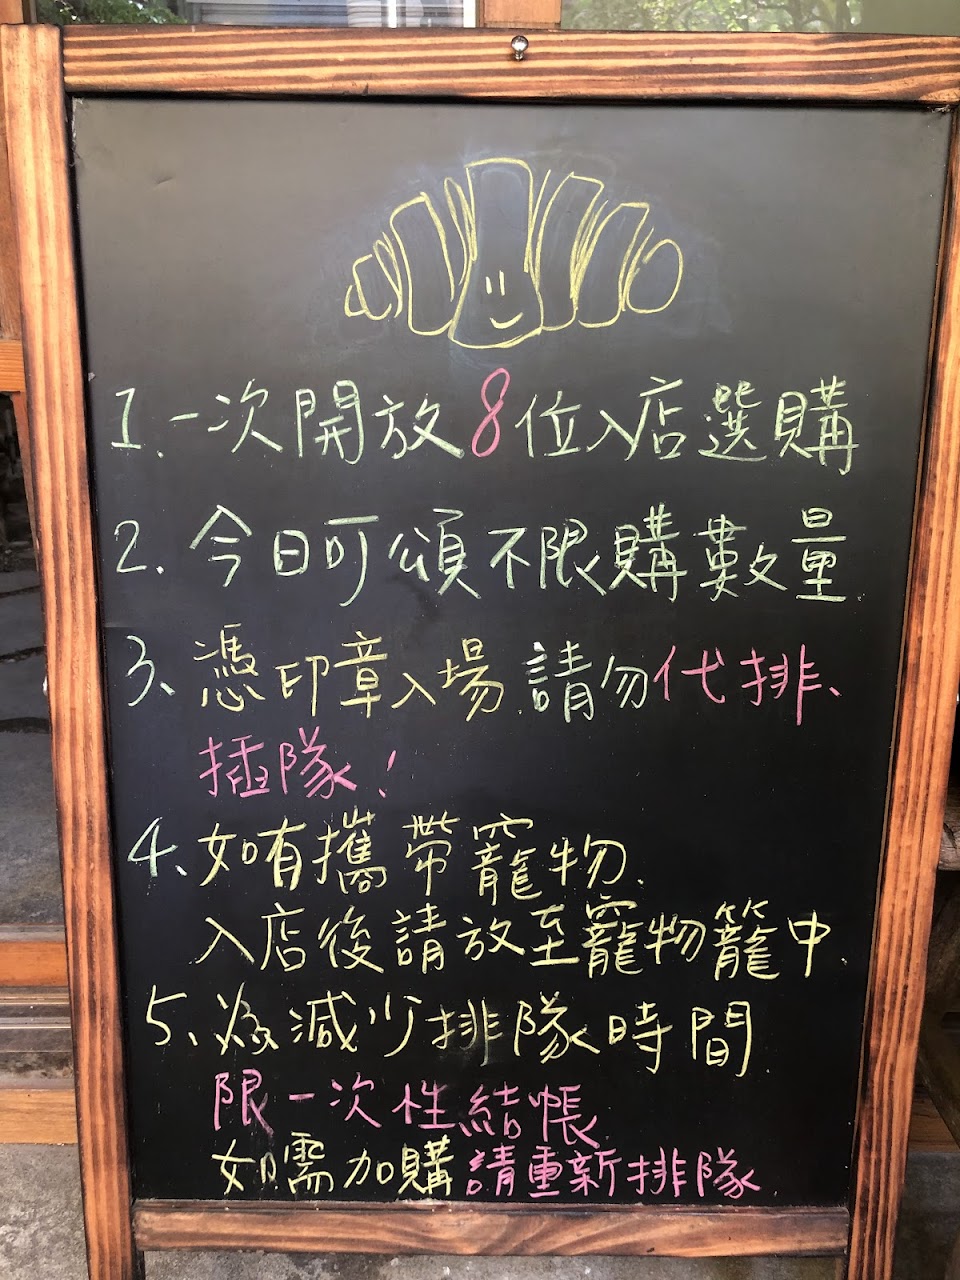 1. 一次開放8位入店選購
2. 今日可頌不限購數量
3、憑印章入場.請勿代排、
插隊!
4、如有攜帶寵物.
入店後請放至寵物籠中.
5、為減少排隊時間.
限一次性結帳.
如需加購請重新排隊.